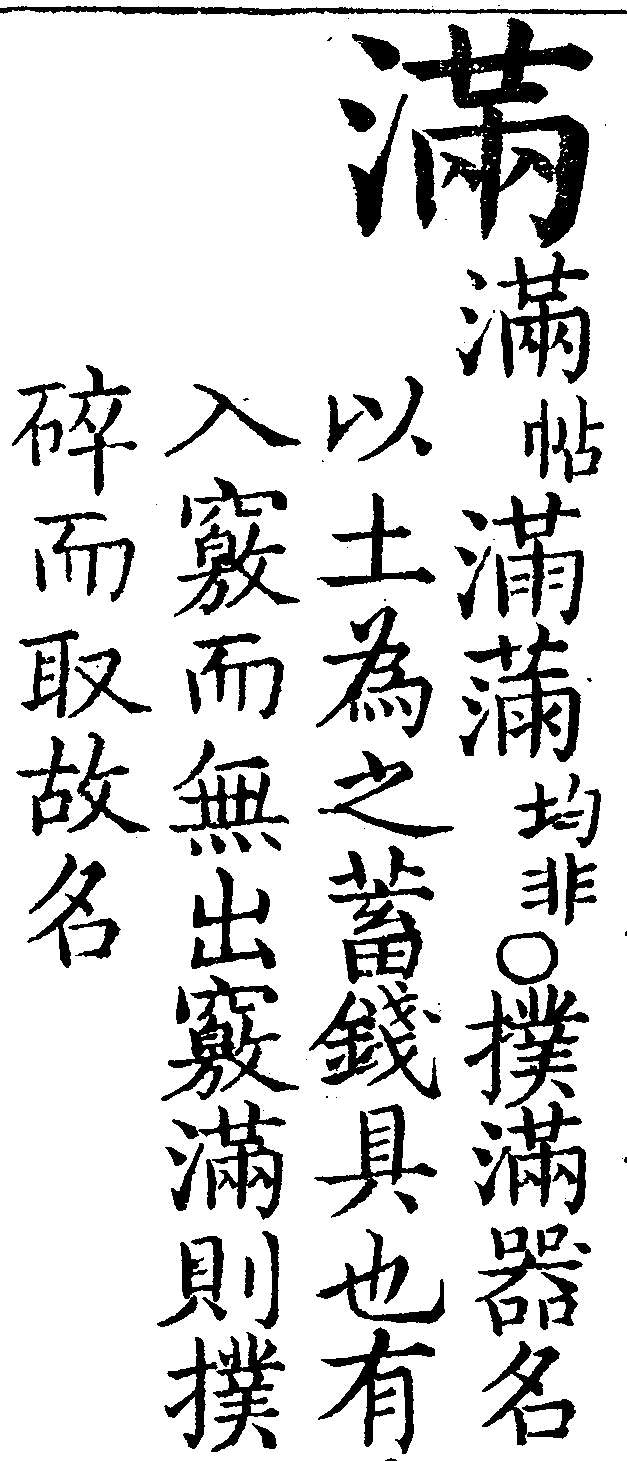 滿
滿帖滿𣻌均非〇撲滿器名
以土為之蓄錢具也有
入竅而無出竅滿則撲
碎而取故名